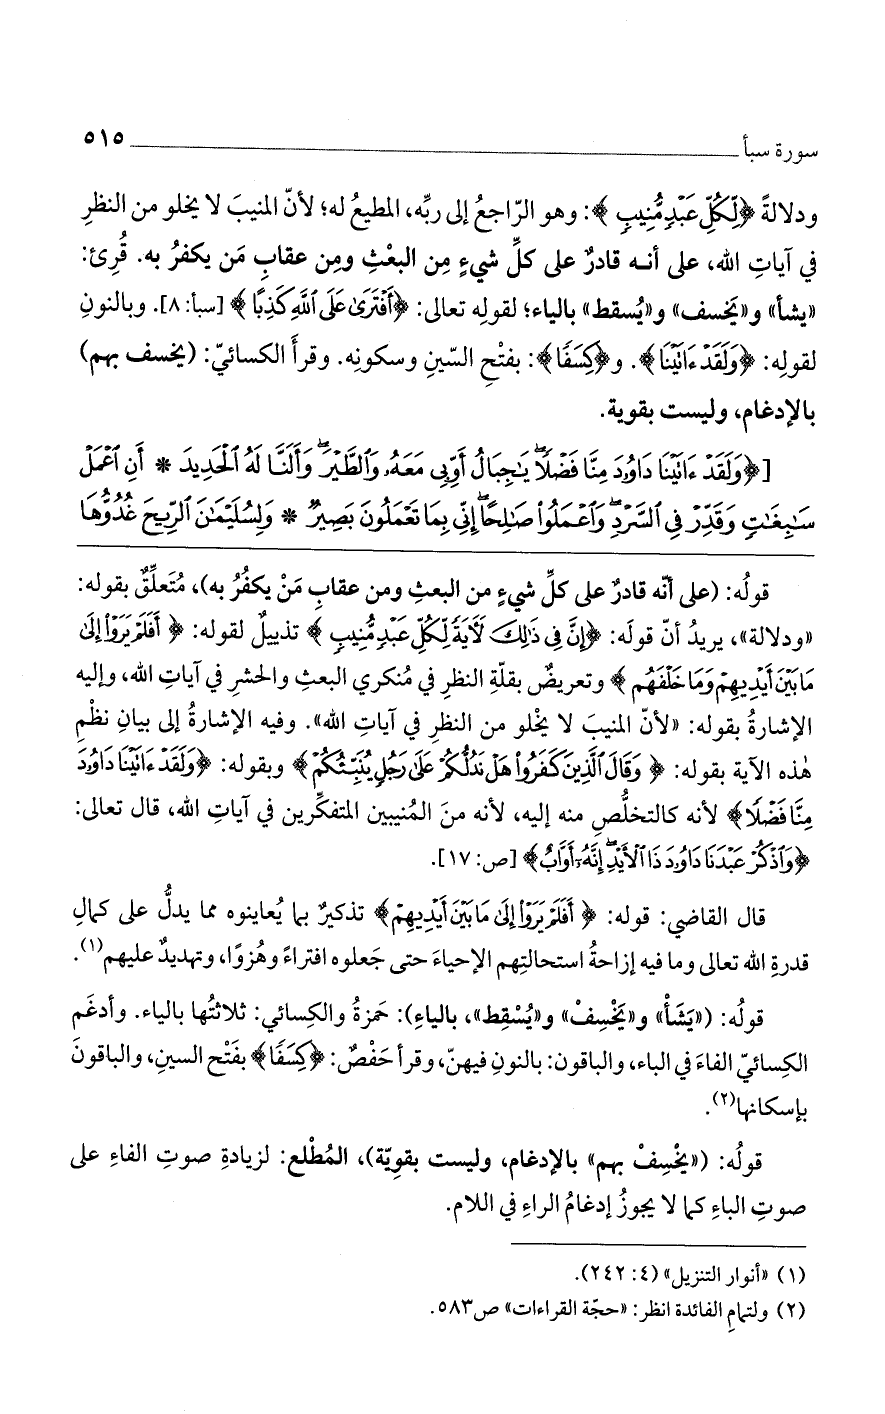 سورة سبأ ٥١٥
ودلالةً ﴿لِّكُلِّ عَبْدٍ مُّنِيبٍ﴾: وهو الرّاجعُ إلى ربِّه، المطيعُ له؛ لأنّ المنيبَ لا يخلو من النظرِ
في آياتِ الله، على أنـه قادرٌ على كلِّ شيءٍ مِن البعْثِ ومِن عقابِ مَن يكفرُ به. قُرِئ:
«يشأ» و«يَخسف» و«يُسقط» بالياء؛ لقولِه تعالى: ﴿أَفْتَرَىٰ عَلَى ٱللَّهِ كَذِبًا﴾ [سبأ: ٨]. وبالنونِ
لقولِه: ﴿وَلَقَدْ ءَاتَيْنَا﴾. و﴿كِسَفًا﴾: بفتْحِ السّينِ وسكونِه. وقرأَ الكسائيّ: (يخسف بهم)
بالإدغام، وليست بقوية.
[﴿وَلَقَدْ ءَاتَيْنَا دَاوُۥدَ مِنَّا فَضْلًا يَٰجِبَالُ أَوِّبِى مَعَهُۥ وَٱلطَّيْرَ وَأَلَنَّا لَهُ ٱلْحَدِيدَ * أَنِ ٱعْمَلْ
سَٰبِغَٰتٍ وَقَدِّرْ فِى ٱلسَّرْدِ وَٱعْمَلُوا۟ صَٰلِحًا إِنِّى بِمَا تَعْمَلُونَ بَصِيرٌ * وَلِسُلَيْمَٰنَ ٱلرِّيحَ غُدُوُّهَا
قولُه: (على أنّه قادرٌ على كلِّ شيءٍ من البعثِ ومن عقابِ مَنْ يكفُرُ به)، مُتَعلِّقٌ بقوله:
«ودلالة»، يريدُ أنّ قولَه: ﴿إِنَّ فِى ذَٰلِكَ لَءَايَةً لِّكُلِّ عَبْدٍ مُّنِيبٍ﴾ تذييلٌ لقوله: ﴿أَفَلَمْ يَرَوْا۟ إِلَىٰ
مَا بَيْنَ أَيْدِيهِمْ وَمَا خَلْفَهُم﴾ وتعريضٌ بقلّةِ النظرِ في مُنكري البعثِ والحشرِ في آياتِ الله، وإليه
الإشارةُ بقوله: «لأنّ المنيبَ لا يخْلو من النظرِ في آياتِ الله». وفيه الإشارةُ إلى بيانِ نظْمِ
هٰذه الآية بقوله: ﴿وَقَالَ ٱلَّذِينَ كَفَرُوا۟ هَلْ نَدُلُّكُمْ عَلَىٰ رَجُلٍ يُنَبِّئُكُمْ﴾ وبقوله: ﴿وَلَقَدْ ءَاتَيْنَا دَاوُۥدَ
مِنَّا فَضْلًا﴾ لأنه كالتخلُّصِ منه إليه، لأنه منَ المُنيبين المتفكِّرين في آياتِ الله، قال تعالى:
﴿وَٱذْكُرْ عَبْدَنَا دَاوُۥدَ ذَا ٱلْأَيْدِ إِنَّهُۥٓ أَوَّابٌ﴾ [ص: ١٧].
قال القاضي: قوله: ﴿أَفَلَمْ يَرَوْا۟ إِلَىٰ مَا بَيْنَ أَيْدِيهِمْ﴾ تذكيرٌ بما يُعاينوه مما يدلُّ على كمالِ
قدرةِ الله تعالى وما فيه إزاحةُ استحالتِهم الإحياءَ حتى جَعلوه افتراءً وهُزوًا، وتهديدٌ عليهم(١).
قولُه: («يَشَأْ» و«يَخْسِفْ» و«يُسْقِط»، بالياءِ): حَمزةُ والكِسائي: ثلاثتُها بالياء. وأدغَم
الكِسائيّ الفاءَ في الباء، والباقون: بالنونِ فيهنّ، وقرأ حَفْصٌ: ﴿كِسَفًا﴾ بفَتْح السينِ، والباقونَ
بإسكانها(٢).
قولُه: («يخْسِفْ بهم» بالإدغام، وليست بقويّة)، المُطْلع: لزيادةِ صوتِ الفاءِ على
صوتِ الباءِ كما لا يجوزُ إدغامُ الراءِ في اللام.
(١) «أنوار التنزيل» (٤: ٢٤٢).
(٢) ولتمامِ الفائدة انظر: «حجّة القراءات» ص٥٨٣.